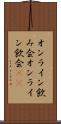 オンライン飲
み会オンライ
ン飲会